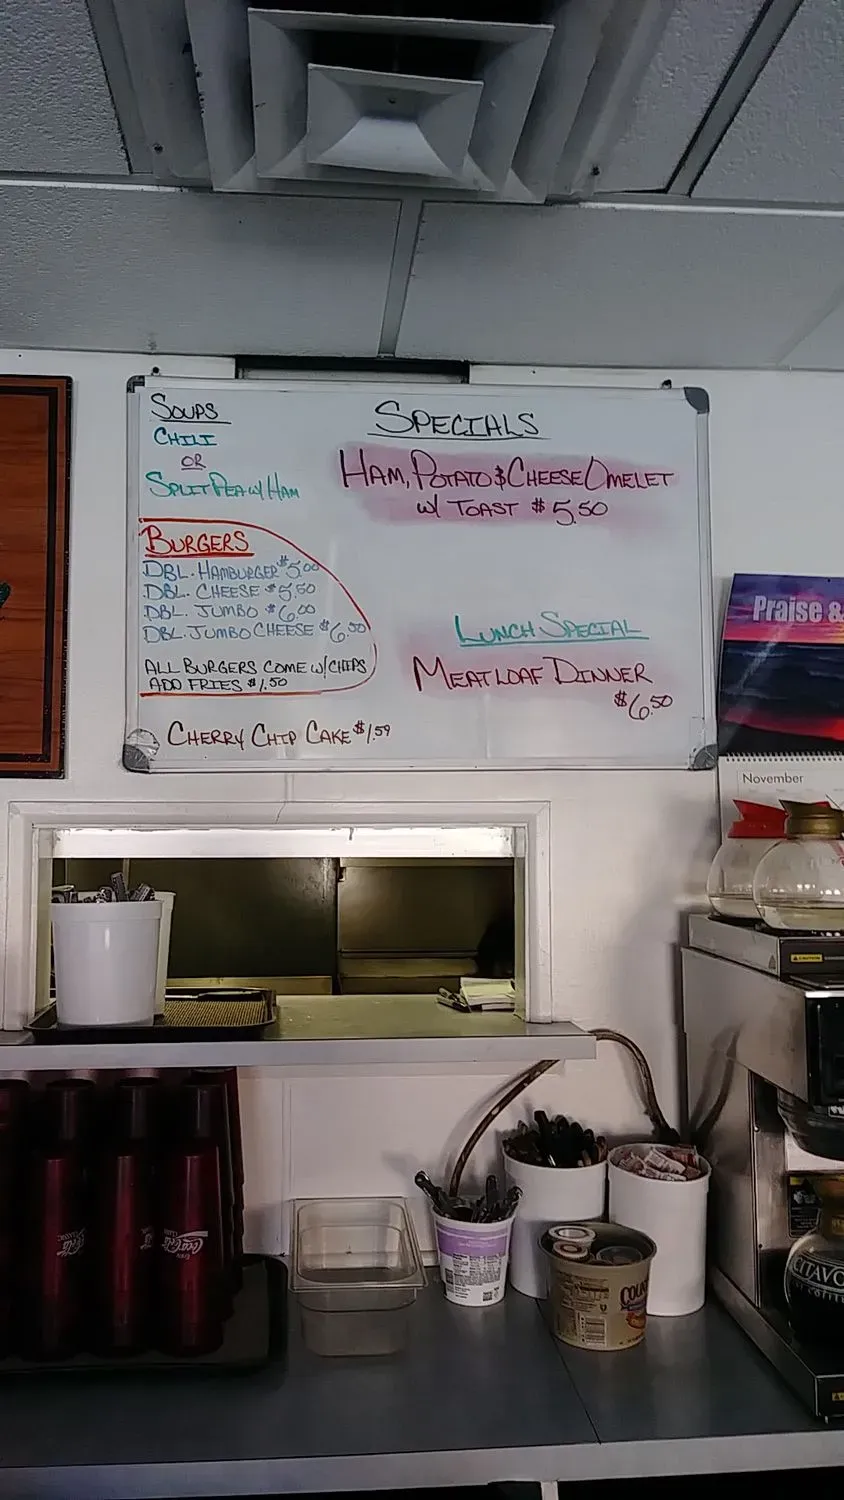 SOUPS
CHILI
OR
SPLIT PEA W/ HAM
BURGERS
DBL. HAMBURGER $5.00
DBL. CHEESE $5.50
DBL. JUMBO $6.00
DBL. JUMBO CHEESE $6.50
ALL BURGERS COME W/ CHIPS
ADD FRIES $1.50
CHERRY CHIP CAKE $1.59
SPECIALS
HAM, POTATO & CHEESE OMELET
W/ TOAST $5.50
LUNCH SPECIAL
MEATLOAF DINNER
$6.50
Praise &
November
CAUTION
Coca-Cola